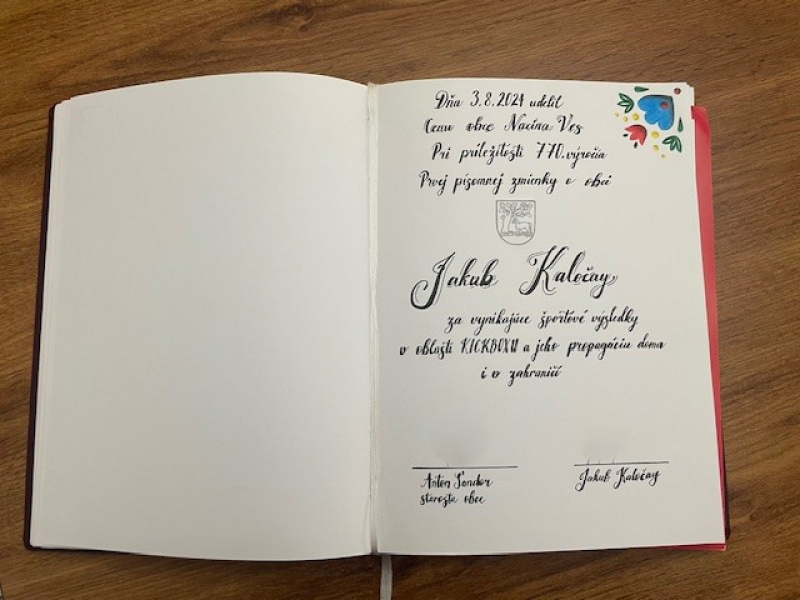 Dňa 3.8.2024 udelil
Cenu obce Nacina Ves
Pri príležitosti 770. výročia
Prvej písomnej zmienky o obci
Jakub Kaločay
za vynikajúce športové výsledky
v oblasti KICKBOXU a jeho propagáciu doma
i v zahraničí
Anton Šandor
starosta obce
Jakub Kaločay